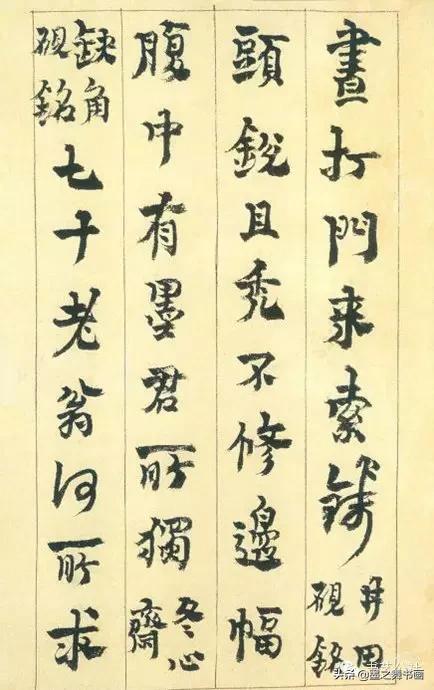 晝打門来索錢井田硯銘
頭銳且禿不修邊幅
腹中有墨君所獨冬心齋
缺角硯銘七十老翁何所求
头条 @墨之舞书画